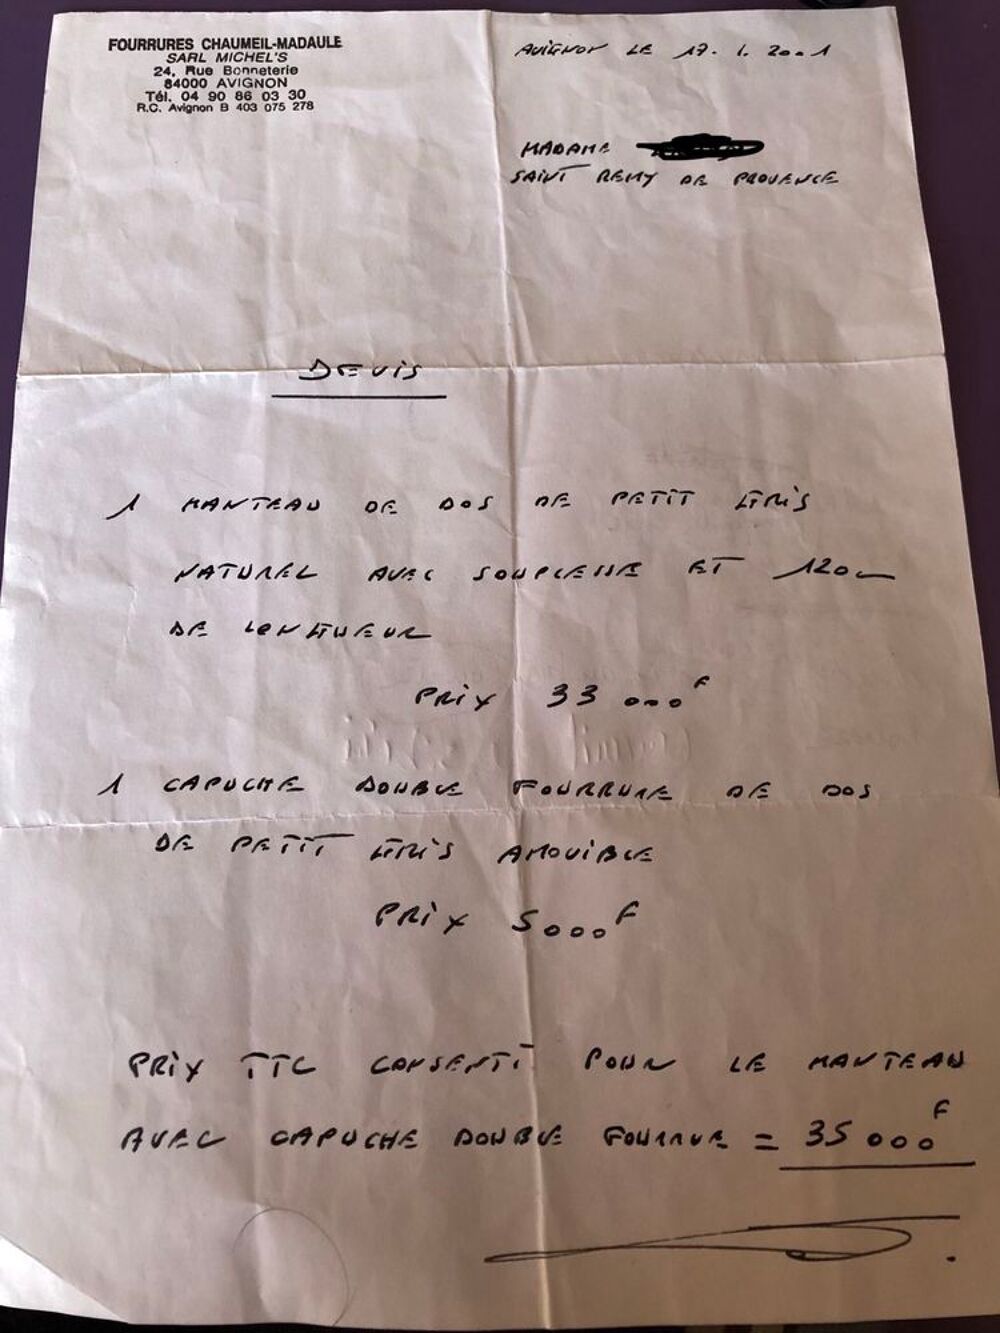 FOURRURES CHAUMEIL-MADAULE
SARL MICHEL'S
24, Rue Bonneterie
84000 AVIGNON
Tél. 04 90 86 03 30
R.C. Avignon B 403 075 278
AVIGNON LE 17. 1. 2001
MADAME
SAINT REMY DE PROVENCE
DEVIS
1 MANTEAU DE DOS DE PETIT GRIS
NATUREL AVEC SOUPLESSE ET 120cm
DE LONGUEUR
PRIX 33 000 F
1 CAPUCHE DOUBLE FOURRURE DE DOS
DE PETIT GRIS AMOVIBLE
PRIX 5000 F
PRIX TTC CONSENTI POUR LE MANTEAU
AVEC CAPUCHE DOUBLE FOURRURE = 35 000 F